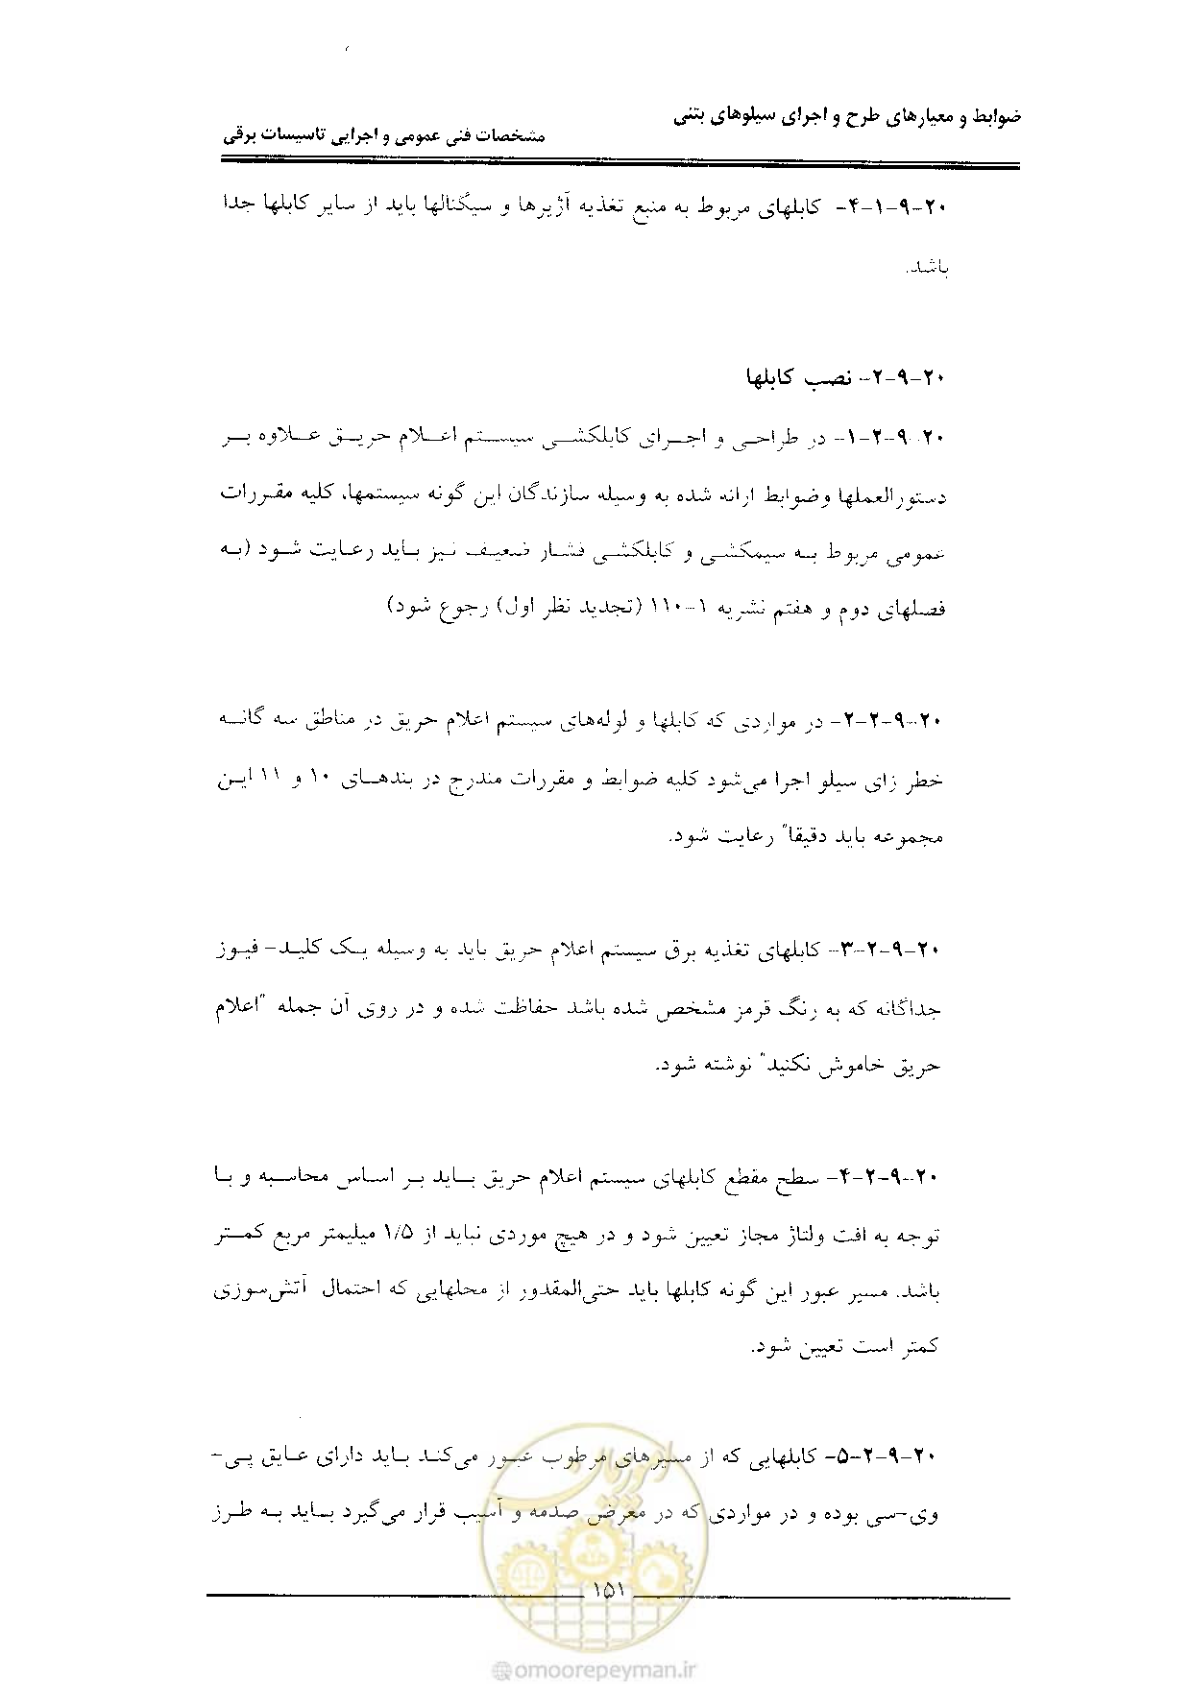 ضوابط و معیارهای طرح و اجرای سیلوهای بتنی
مشخصات فنی عمومی و اجرایی تاسیسات برقی
۲۰-۹-۱-۴- کابلهای مربوط به منبع تغذیه آژیرها و سیگنالها باید از سایر کابلها جدا
باشد.
۲۰-۹-۲- نصب کابلها
۲۰-۹-۲-۱- در طراحی و اجرای کابلکشی سیستم اعلام حریق علاوه بر
دستورالعملها وضوابط ارائه شده به وسیله سازندگان این گونه سیستمها، کلیه مقررات
عمومی مربوط به سیمکشی و کابلکشی فشار ضعیف نیز باید رعایت شود (به
فصلهای دوم و هفتم نشریه ۱-۱۱۰ (تجدید نظر اول) رجوع شود)
۲۰-۹-۲-۲- در مواردی که کابلها و لوله‌های سیستم اعلام حریق در مناطق سه گانه
خطر زای سیلو اجرا می‌شود کلیه ضوابط و مقررات مندرج در بندهای ۱۰ و ۱۱ این
مجموعه باید دقیقا" رعایت شود.
۲۰-۹-۲-۳- کابلهای تغذیه برق سیستم اعلام حریق باید به وسیله یک کلید- فیوز
جداگانه که به رنگ قرمز مشخص شده باشد حفاظت شده و در روی آن جمله "اعلام
حریق خاموش نکنید" نوشته شود.
۲۰-۹-۲-۴- سطح مقطع کابلهای سیستم اعلام حریق باید بر اساس محاسبه و با
توجه به افت ولتاژ مجاز تعیین شود و در هیچ موردی نباید از ۱/۵ میلیمتر مربع کمتر
باشد. مسیر عبور این گونه کابلها باید حتی‌المقدور از محلهایی که احتمال آتش‌سوزی
کمتر است تعیین شود.
۲۰-۹-۲-۵- کابلهایی که از مسیرهای مرطوب عبور می‌کند باید دارای عایق پی-
وی-سی بوده و در مواردی که در معرض صدمه و آسیب قرار می‌گیرد باید به طرز
۱۵۱
@omoorepeyman.ir